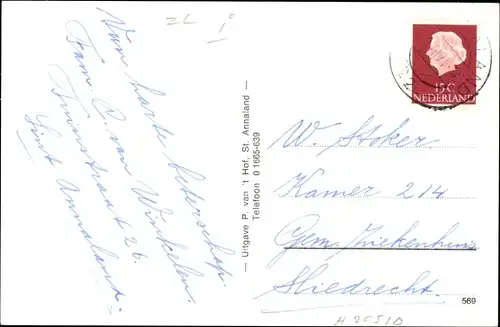 ZL
i
Van harte beterschap.
Fam. C. van Winkelen.
Tuinstraat 26.
Sint Annaland.
— Uitgave P. van 't Hof, St. Annaland —
Telefoon 0 1665-639
LAND
15C
NEDERLAND
W. Stoker.
Kamer 214
Gem. Ziekenhuis
Sliedrecht.
569
H 20510